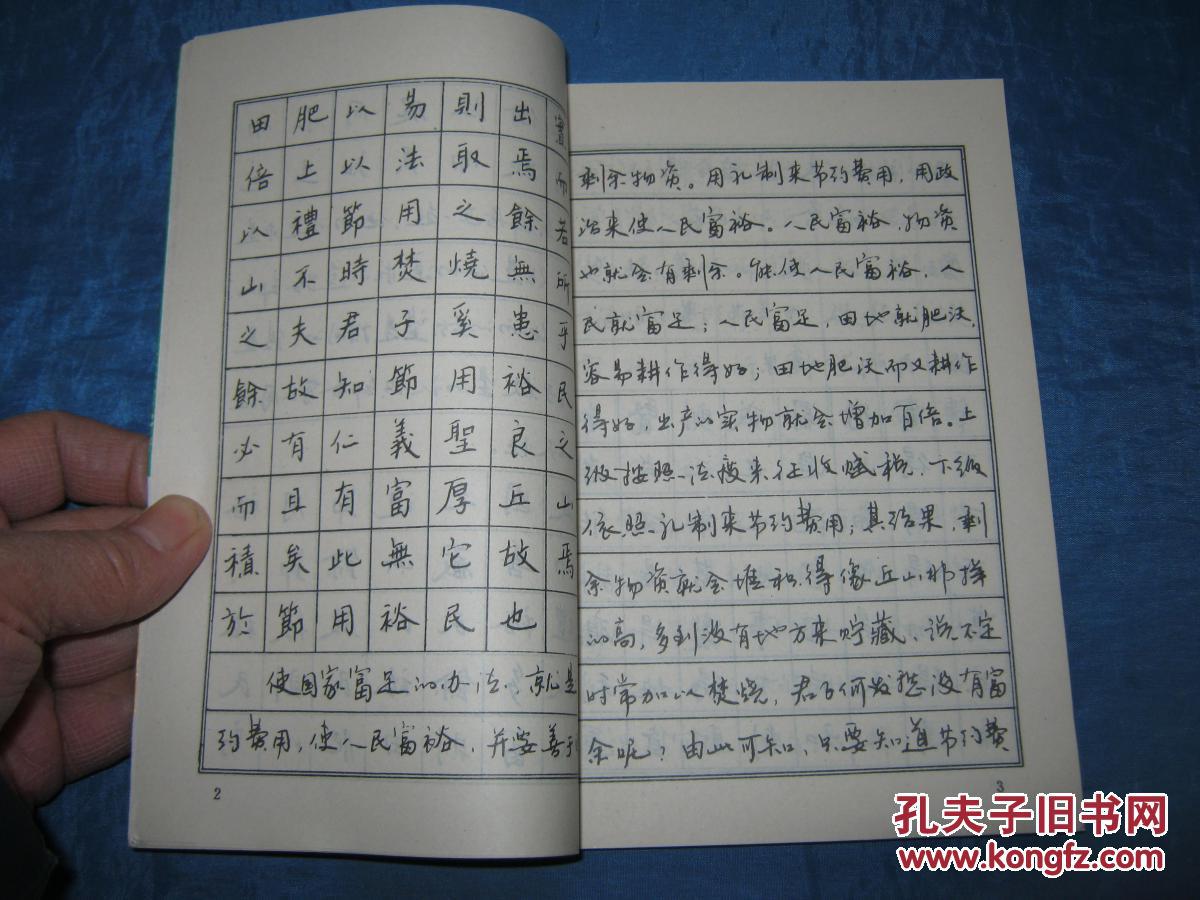 田肥以易則出實
倍上以法取焉而
以禮節用之餘若
山不時焚燒無所
之夫君子奚患乎
餘故知節用裕民
必有仁義聖良之
而且有富厚丘山
積矣此無它故焉
於節用裕民也
使国家富足的办法,就是
约费用,使人民富裕,并要善于
2
剩余物资。用礼制来节约费用,用政
治来使人民富裕。人民富裕,物资
也就会有剩余。能使人民富裕,人
民就富足;人民富足,田地就肥沃,
容易耕作得好;田地肥沃而又耕作
得好,出产的实物就会增加百倍。上
级按照法度来征收赋税,下级
依照礼制来节约费用;其结果,剩
余物资就会堆积得像丘山那样
的高,多到没有地方来贮藏,说不定
时常加以焚烧,君子何发愁没有富
余呢?由此可知,只要知道节约费
3
孔夫子旧书网
www.kongfz.com